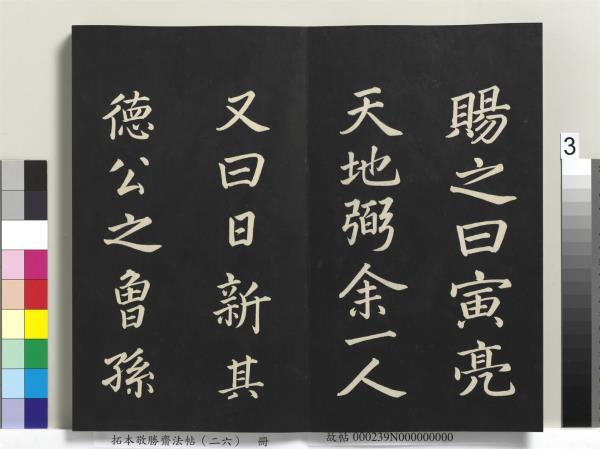 賜之曰寅亮
天地弼余一人
又曰日新其
德公之曾孫
拓本敬勝齋法帖（二六） 冊
故帖 000239N000000000
3